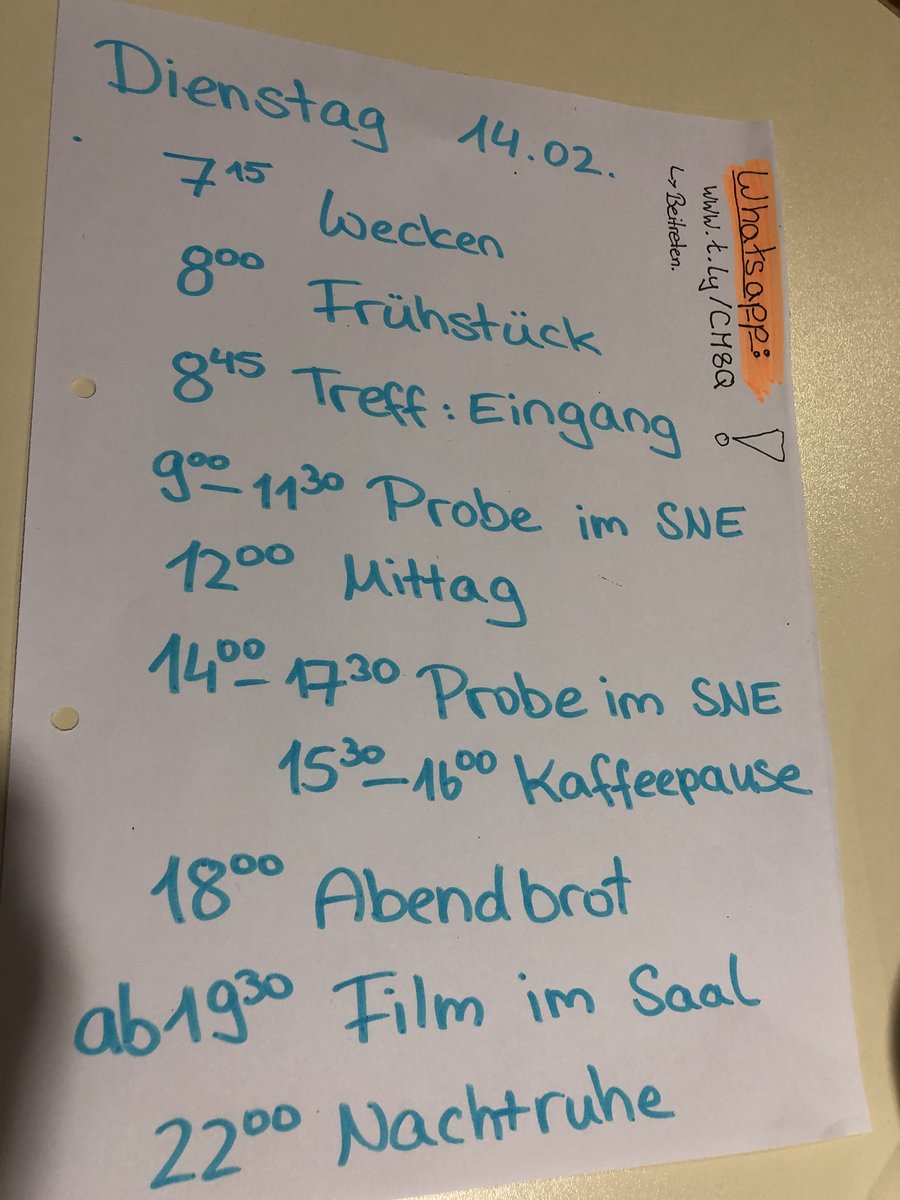 Dienstag 14.02.
7 15 Wecken
8 00 Frühstück
8 45 Treff: Eingang
9 00 – 11 30 Probe im SNE
12 00 Mittag
14 00 – 17 30 Probe im SNE
15 30 – 16 00 Kaffeepause
18 00 Abendbrot
ab 19 30 Film im Saal
22 00 Nachtruhe
Whatsapp: !
www.t.ly/CM8Q
↳ Beitreten.